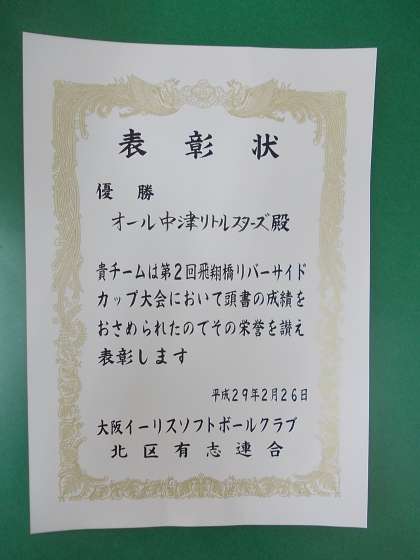 表彰状
優勝
オール中津リトルスターズ殿
貴チームは第2回飛翔橋リバーサイド
カップ大会において頭書の成績を
おさめられたのでその栄誉を讃え
表彰します
平成29年2月26日
大阪イーリスソフトボールクラブ
北区有志連合